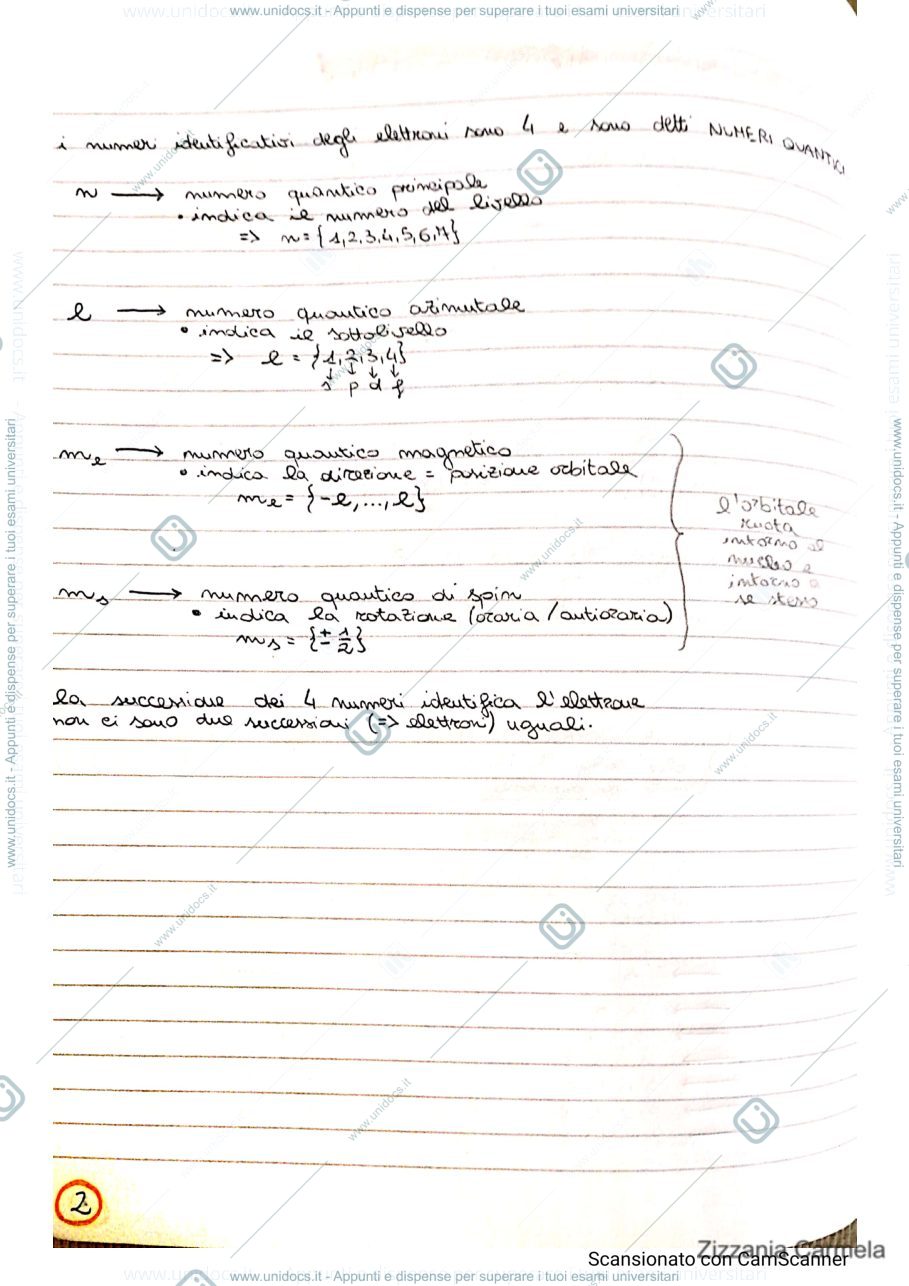 www.unidocs.it - Appunti e dispense per superare i tuoi esami universitari
i numeri identificativi degli elettroni sono 4 e sono detti NUMERI QUANTICI
n → numero quantico principale
• indica il numero del livello
=> n = {1,2,3,4,5,6,7}
l → numero quantico azimutale
• indica il sottolivello
=> l = {1,2,3,4}
↓ ↓ ↓ ↓
s p d f
mℓ → numero quantico magnetico
• indica la direzione = posizione orbitale
mℓ = {-l, ..., l}
l'orbitale
ruota
intorno al
nucleo e
intorno a
se stesso
ms → numero quantico di spin
• indica la rotazione (oraria / antioraria)
ms = {± 1/2}
la successione dei 4 numeri identifica l'elettrone
non ci sono due successioni (=> elettroni) uguali.
2
Zizzania Carmela
Scansionato con CamScanner
www.unidocs.it - Appunti e dispense per superare i tuoi esami universitari
www.unidocs.it - Appunti e dispense per superare i tuoi esami universitari
www.unidocs.it - Appunti e dispense per superare i tuoi esami universitari